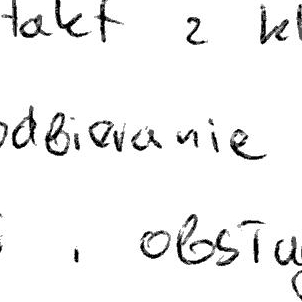 takt z kl
odbieranie
i, obsłu